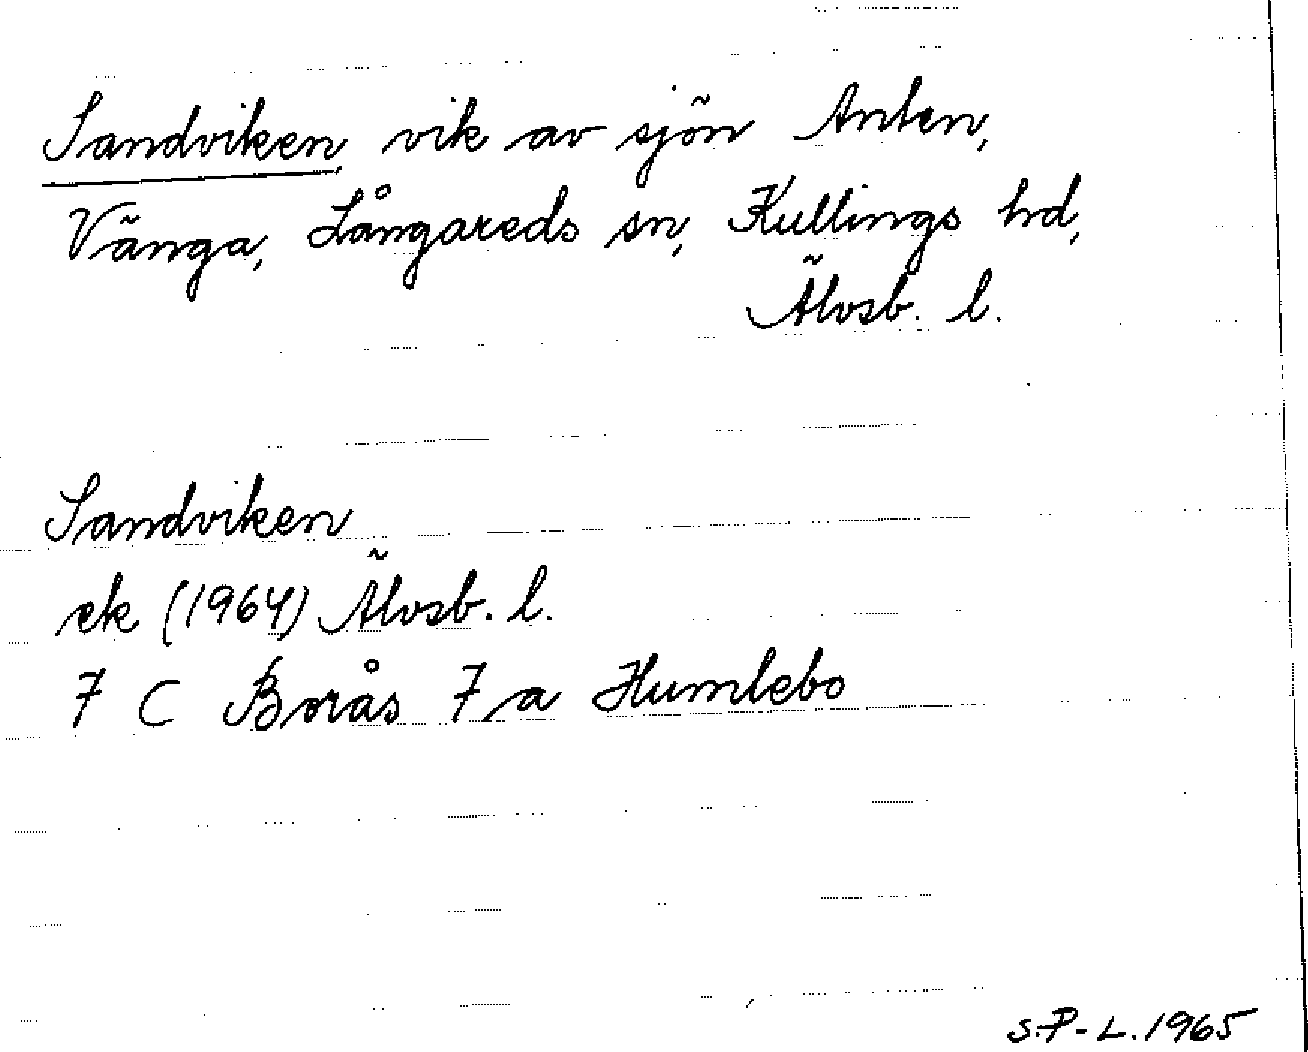 Sandviken, vik av sjön Anten,
Vänga, Långareds sn, Kullings hd,
Älvsb. l.
Sandviken
ek (1964) Älvsb. l.
7 C Borås 7 a Humlebo
S.P-L. 1965